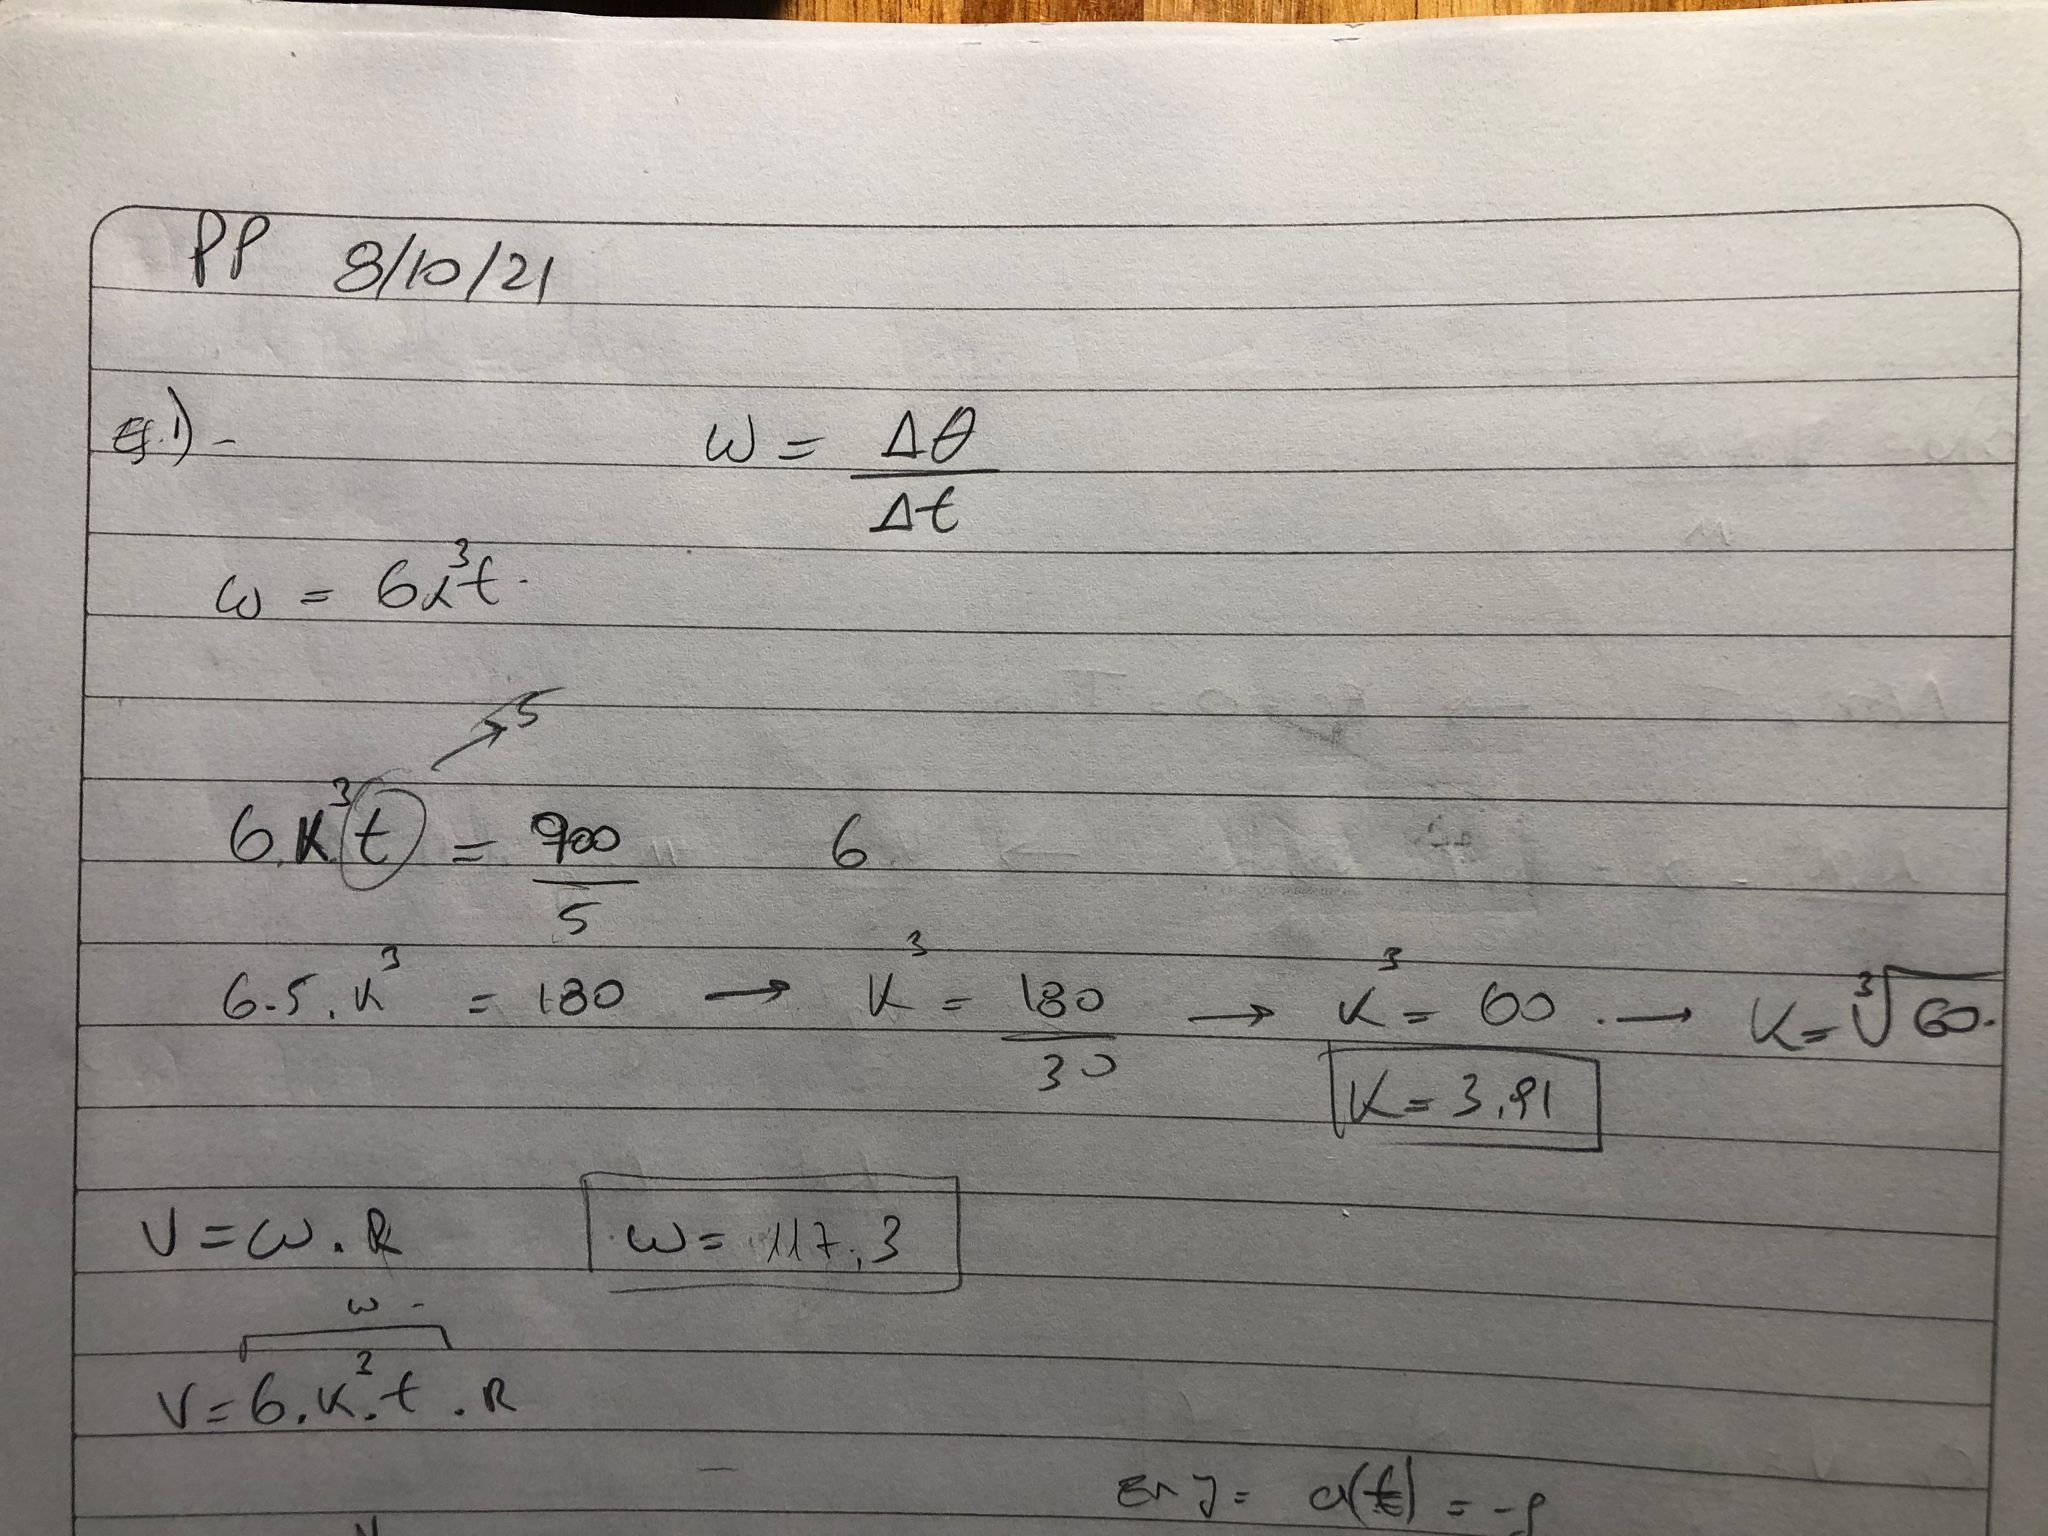 PP 8/10/21
Ej.1)-
ω = Δθ/Δt
ω = 6k³t.
5
6.K³t = 900/5 6
6.5.K³ = 180 → K³ = 180/30 → K³ = 60 . → K = ³√60.
K = 3,91
V = ω . R ω = 117,3
ω -
V = 6.K³.t . R
En y = a(t) = -g